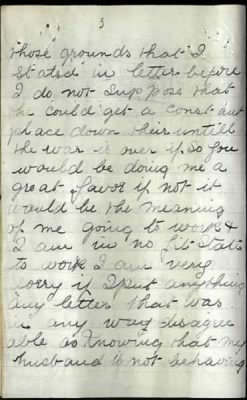 3
those grounds that I
stated in letter before
I do not suppose that
he could get a constant
place down their untill
the war is over if so you
would be doing me a
great favor if not it
would be the meaning
of me going to work &
I am in no fit state
to work I am very
sorry if I put anything
any letter that was
in any way disagree
able as knowing that my
husband is not behaving